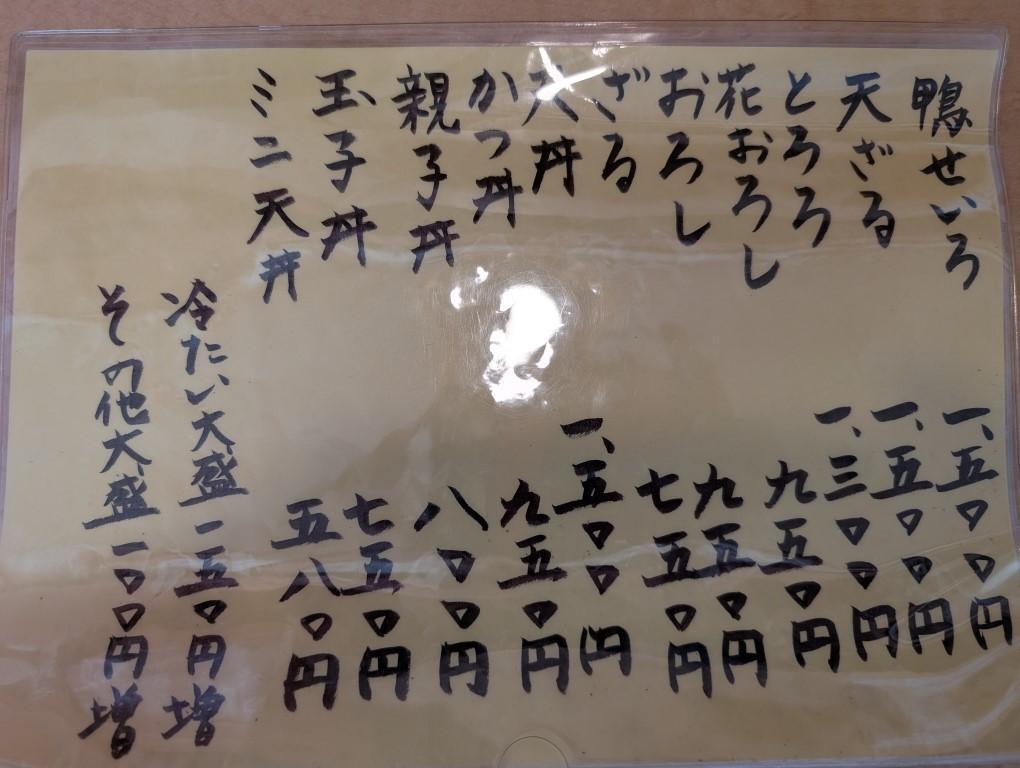 鴨せいろ 一、五〇〇円
天ざる 一、五〇〇円
とろろ 一、三〇〇円
花おろし 九五〇円
おろし 九五〇円
ざる 七五〇円
天丼 一、五〇〇円
かつ丼 九五〇円
親子丼 八〇〇円
玉子丼 七五〇円
ミニ天丼 五八〇円
冷たい大盛 一五〇円増
その他大盛 一〇〇円増